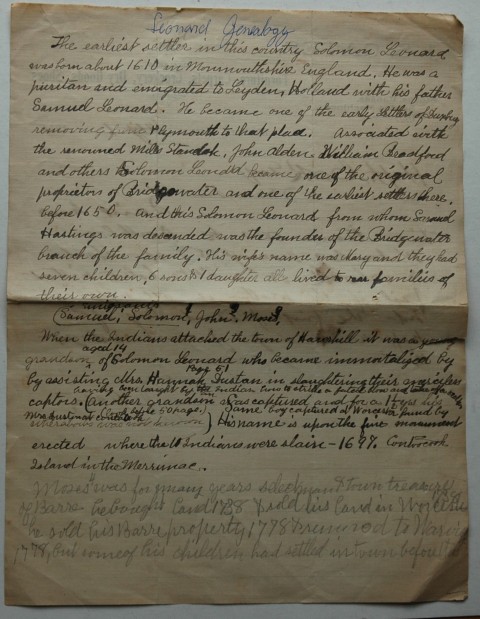 Leonard Genealogy
The earliest settler in this country Solomon Leonard
was born about 1610 in Monmouthshire England. He was a
puritan and emigrated to Leyden, Holland with his father
Samuel Leonard. He became one of the early settlers of
removing from Plymouth to that place. Associated with
the renouned Mile Standish, John Alden, William Bradford
and others Solomon Leonard became one of the original
proprietors of Bridgewater and one of the earliest settlers there
before 1650. and this Solomon Leonard from whom
Hastings was descended was the founder of the Bridgewater
branch of the family. His wife's name was Mary and they had
seven children, 6 sons & 1 daughter all lived to families of
their own.
(Samuel, Solomon, John, Moses,
When the Indians attacked the town of Haverhill it was a young
aged 14
grandson of Solomon Leonard who became immortalized by
Page 51
by assisting Mrs. Hannah Dustan in slaughtering their merciless
boy taught by the Indian how to strike a fatal blow and
captors. (Another grandson was captured and for a
Mrs Dustan 50 page. Same boy captured at Worcester
known) His name is upon the fine monument
erected where the 10 Indians were slain - 1697. Contoocook
Island in the Merrimac.
Moses was for many years selectman & town treasurer
of Barre he bought land & sold his land in
he sold his Barre property, 1778 & removed to
1778, but some of his children had settled in town before